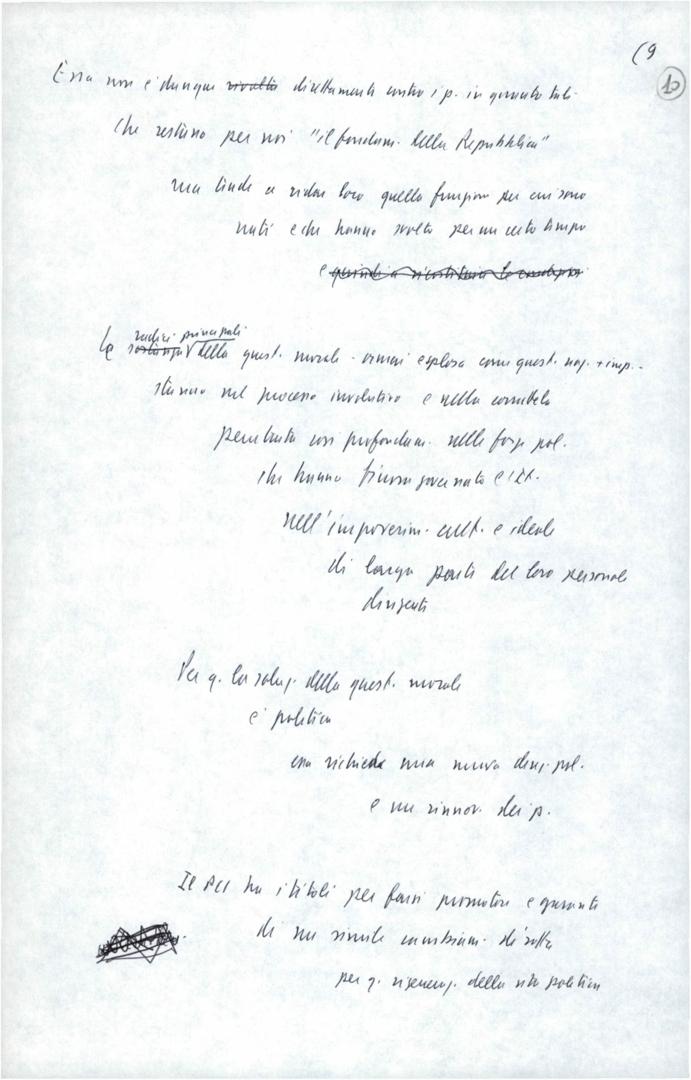 (9
10
Essa non è dunque rivolta direttamente contro i p. in quanto tali
che restano per noi "il fondam. della Repubblica"
ma tende a ridare loro quella funzione per cui sono
nati e che hanno svolto per un certo tempo
e quindi a ricostituire le
Le radici principali
sostanza della quest. morale - ormai esplosa come quest. naz. + imp. -
stanno nel processo involutivo e nella
penetrata così profondam. nelle forze pol.
che hanno finora governato l'It.
nell'impoverim. cult. e ideale
di larga parte del loro personale
dirigente
Per q. la soluz. della quest. morale
è politica
essa richiede una nuova direz. pol.
e un rinnov. dei p.
Il PCI ha i titoli per farsi promotore e garante
di un simile cambiam. di rotta
per q. rigeneraz. della vita politica